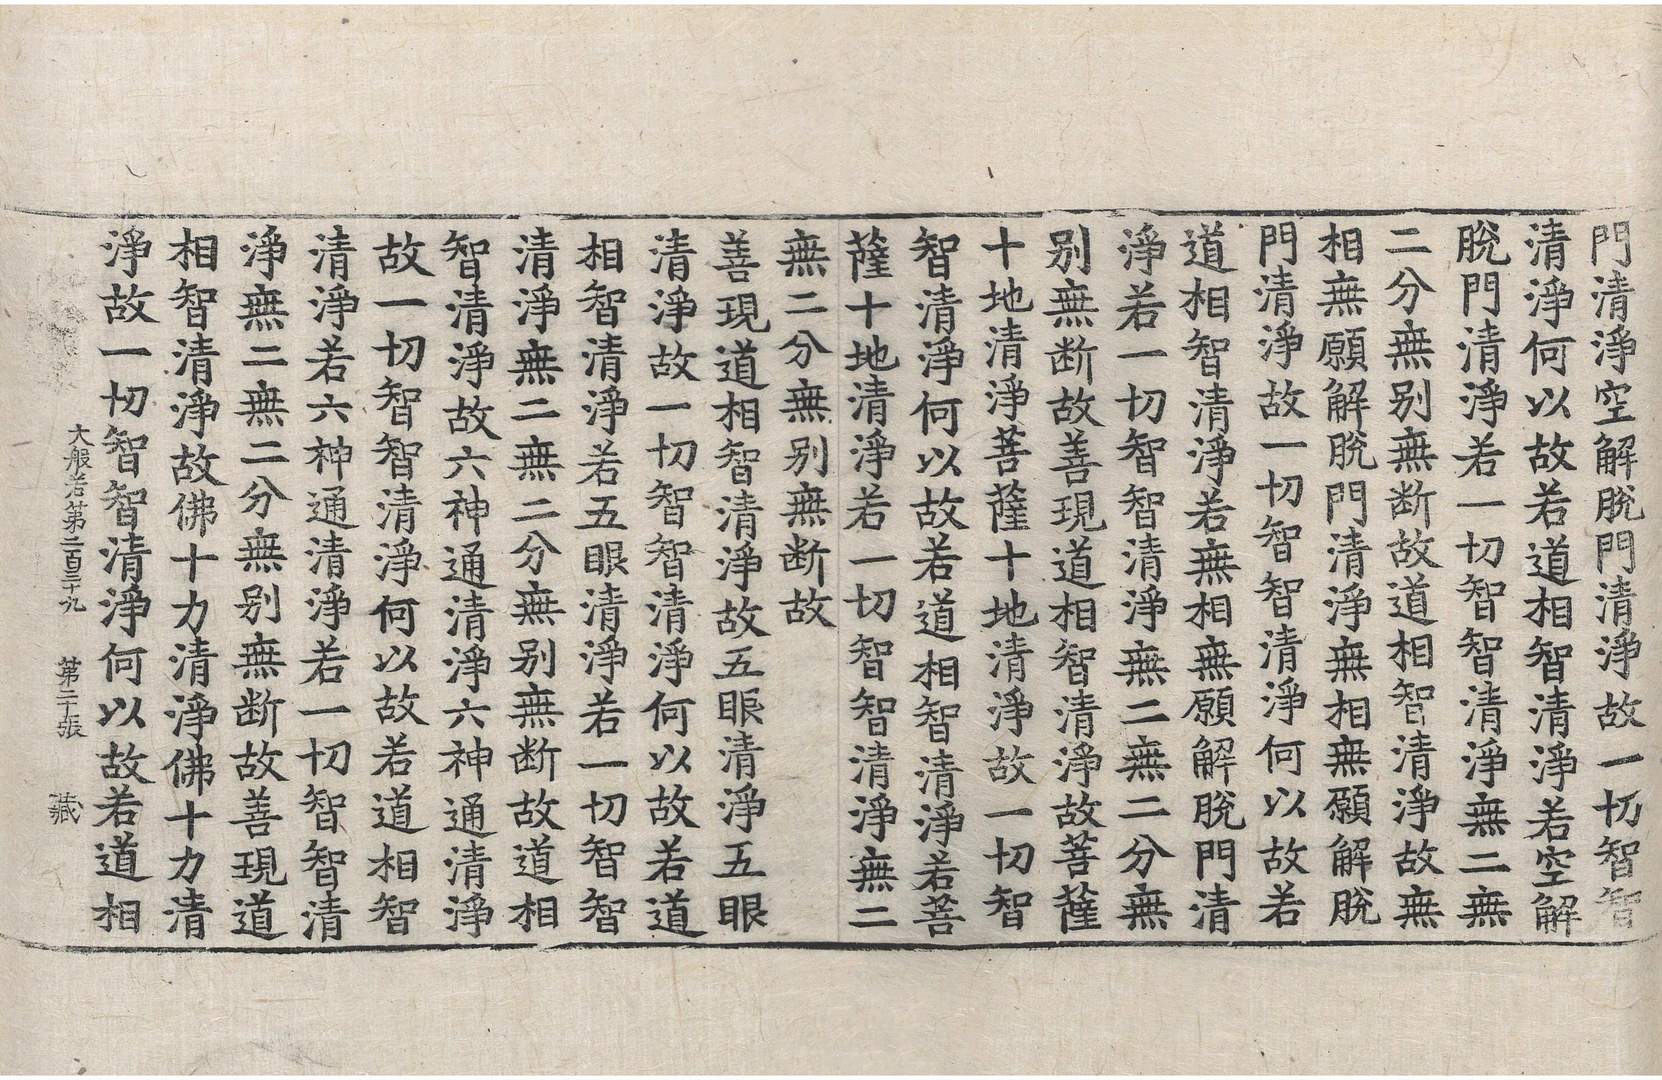 門清淨空解脫門清淨故一切智智
清淨何以故若道相智清淨若空解
脫門清淨若一切智智清淨無二無
二分無别無断故道相智清淨故無
相無願解脫門清淨無相無願解脫
門清淨故一切智智清淨何以故若
道相智清淨若無相無願解脫門清
淨若一切智智清淨無二無二分無
别無断故善現道相智清淨故菩薩
十地清淨菩薩十地清淨故一切智
智清淨何以故若道相智清淨若菩
薩十地清淨若一切智智清淨無二
無二分無别無断故
善現道相智清淨故五眼清淨五眼
清淨故一切智智清淨何以故若道
相智清淨若五眼清淨若一切智智
清淨無二無二分無别無断故道相
智清淨故六神通清淨六神通清淨
故一切智智清淨何以故若道相智
清淨若六神通清淨若一切智智清
淨無二無二分無别無断故善現道
相智清淨故佛十力清淨佛十力清
淨故一切智智清淨何以故若道相
大般若第二百三十九 第二十張 藏